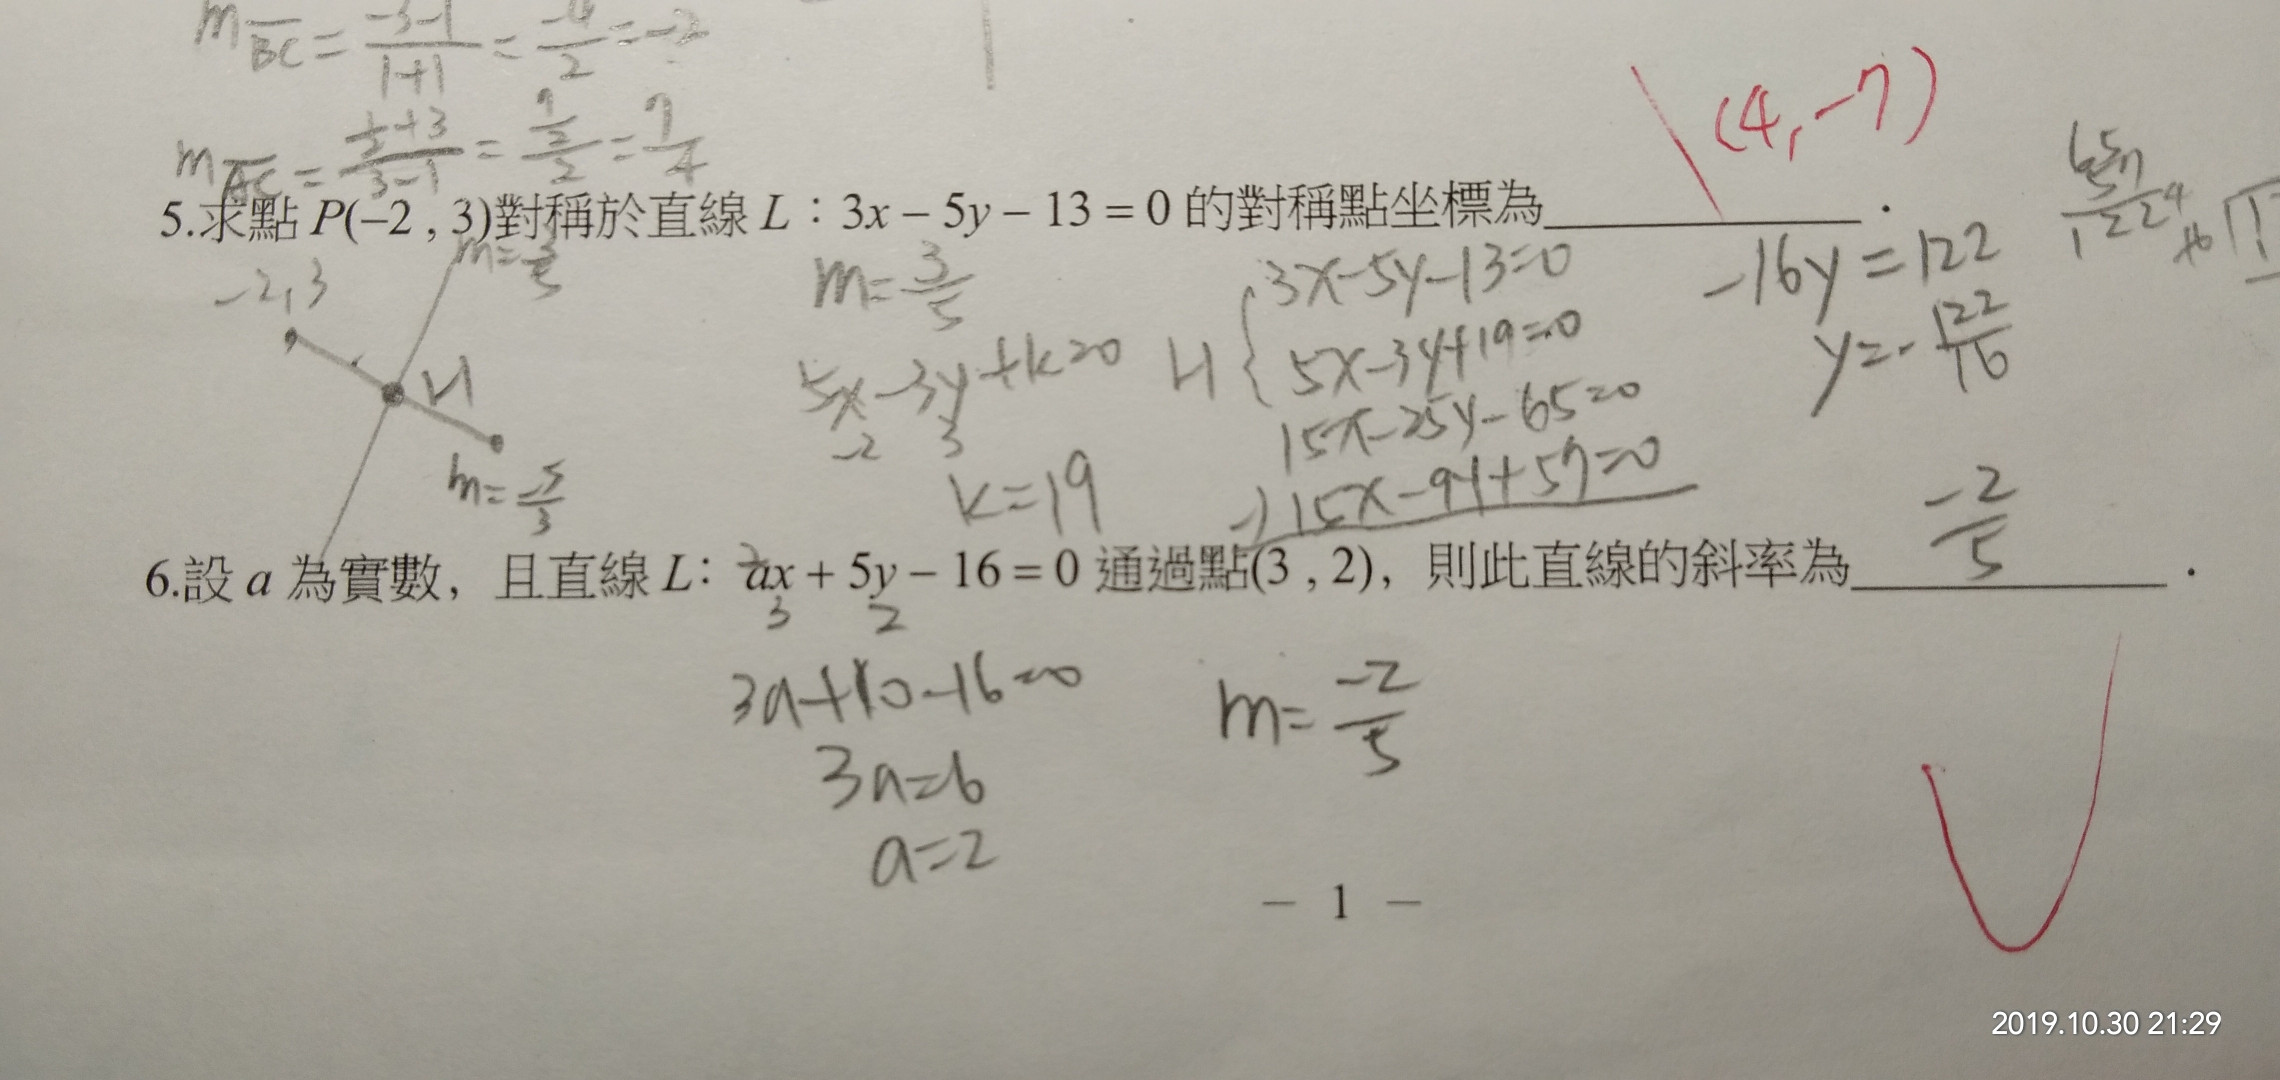 m BC = -3-1/1+1 = -4/2 = -2
m AC = 1/2+3/3-1 = 7/2/2 = 7/4
(4,-7)
5.求點 P(–2 , 3)對稱於直線 L:3x – 5y – 13 = 0 的對稱點坐標為______.
-2,3
m=3/5
H
m=-5/3
m=3/5
5x-3y+k=0
-2 3
k=19
H { 3x-5y-13=0
5x-3y+19=0
15x-25y-65=0
-) 15x-9y+57=0
-16y=122
y=-122/16
6.設 a 為實數,且直線 L: ax + 5y – 16 = 0 通過點(3 , 2),則此直線的斜率為 -2/5 .
2
3 2
3a+10-16=0
3a=6
a=2
m= -2/5
– 1 –
2019.10.30 21:29